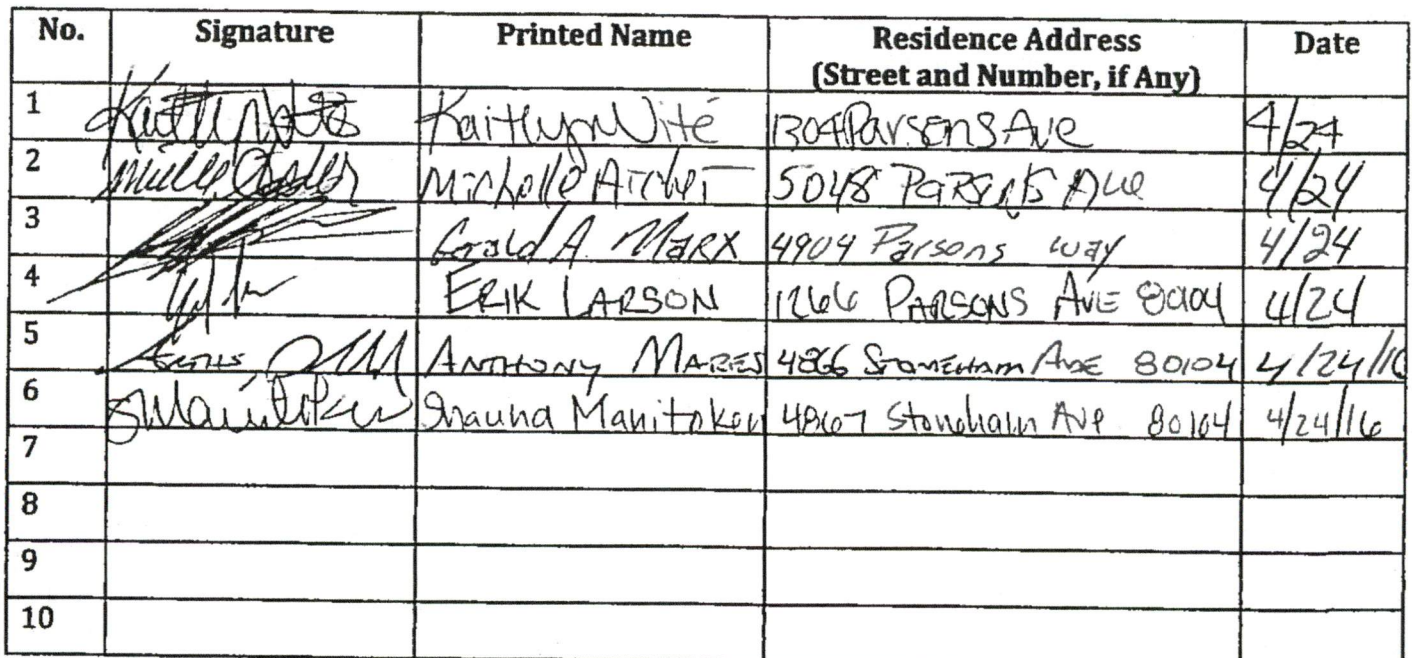 No. Signature Printed Name Residence Address (Street and Number, if Any) Date
1 Kaitlyn Vité 1304 Parsons Ave 4/24
2 Michelle Archer 5048 Parsons Ave 4/24
3 Gerald A. Marx 4904 Parsons way 4/24
4 ERIK LARSON 1266 PARSONS AVE 80104 4/24
5 ANTHONY MARES 4866 STONEHAM AVE 80104 4/24/16
6 Shauna Manitoken 4867 Stoneham Ave 80104 4/24/16
7
8
9
10